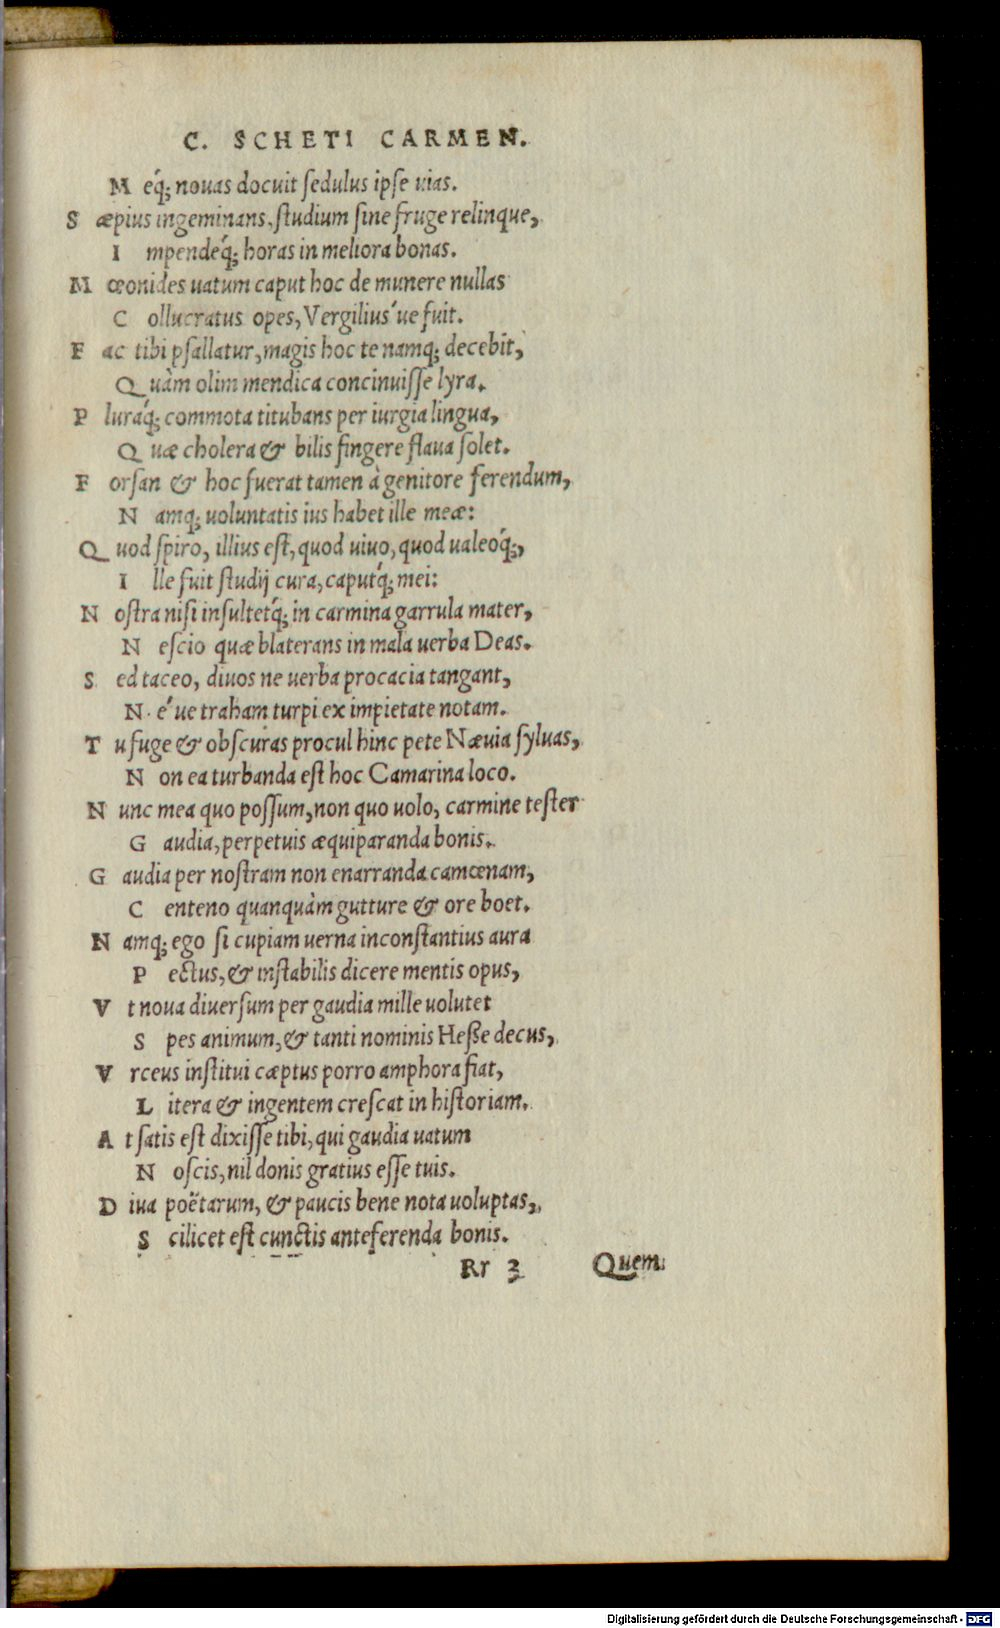 C. SCHETI CARMEN.
M eq́; nouas docuit ſedulus ipſe uias.
S æpius ingeminans, ſtudium ſine fruge relinque,
I mpendeq́; horas in meliora bonas.
M œonides uatum caput hoc de munere nullas
C ollucratus opes, Vergilius'ue fuit.
F ac tibi pſallatur, magis hoc te namq; decebit,
Q uàm olim mendica concinuiſſe lyra.
P luraq́; commota titubans per iurgia lingua,
Q uæ cholera & bilis fingere flaua ſolet.
F orſan & hoc fuerat tamen à genitore ferendum,
N amq; uoluntatis ius habet ille meæ:
Q uod ſpiro, illius eſt, quod uiuo, quod ualeoq́;,
I lle fuit ſtudij cura, caputq́; mei:
N oſtra niſi inſultetq́; in carmina garrula mater,
N eſcio quæ blaterans in mala uerba Deas.
S ed taceo, diuos ne uerba procacia tangant,
N é'ue traham turpi ex impietate notam.
T u fuge & obſcuras procul hinc pete Næuia ſyluas,
N on ea turbanda eſt hoc Camarina loco.
N unc mea quo poſſum, non quo uolo, carmine teſter
G audia, perpetuis æquiparanda bonis.
G audia per noſtram non enarranda camœnam,
C enteno quanquàm gutture & ore boet.
N amq; ego ſi cupiam uerna inconſtantius aura
P ectus, & inſtabilis dicere mentis opus,
V t noua diuerſum per gaudia mille uolutet
S pes animum, & tanti nominis Heſſe decus,
V rceus inſtitui cæptus porro amphora fiat,
L itera & ingentem creſcat in hiſtoriam.
A t ſatis eſt dixiſſe tibi, qui gaudia uatum
N oſcis, nil donis gratius eſſe tuis.
D iua poëtarum, & paucis bene nota uoluptas,
S cilicet eſt cunctis anteferenda bonis.
Rr 3 Quem
Digitalisierung gefördert durch die Deutsche Forschungsgemeinschaft - DFG